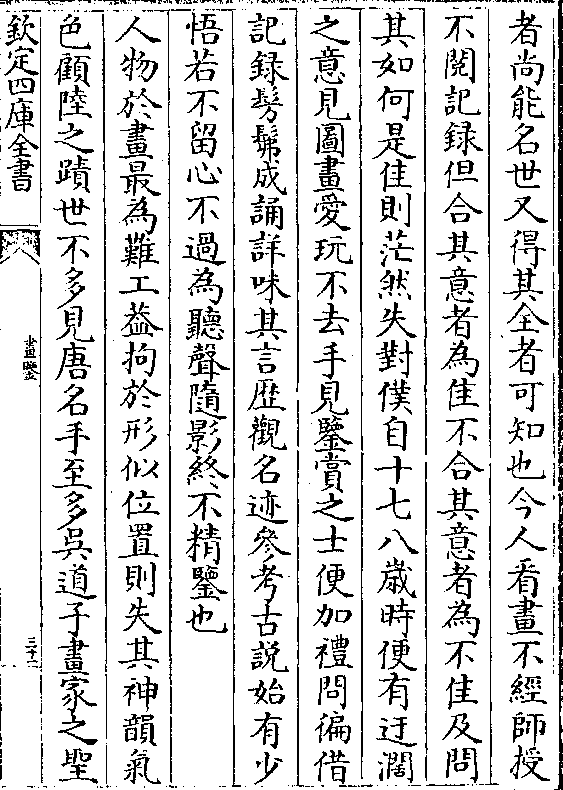 者尚能名世又得其全者可知也今人看畫不經師授
不閱記録但合其意者為佳不合其意者為不佳及問
其如何是佳則茫然失對僕自十七八歲時便有迂濶
之意見圖畫愛玩不去手見鑒賞之士便加禮問徧借
記録髣髴成誦詳味其言歴觀名迹參考古説始有少
悟若不留心不過為聽聲隨影終不精鑒也
人物於畫最為難工葢拘於形似位置則失其神韻氣
色顧陸之蹟世不多見唐名手至多吳道子畫家之聖
欽定四庫全書
畫鑒
三十二